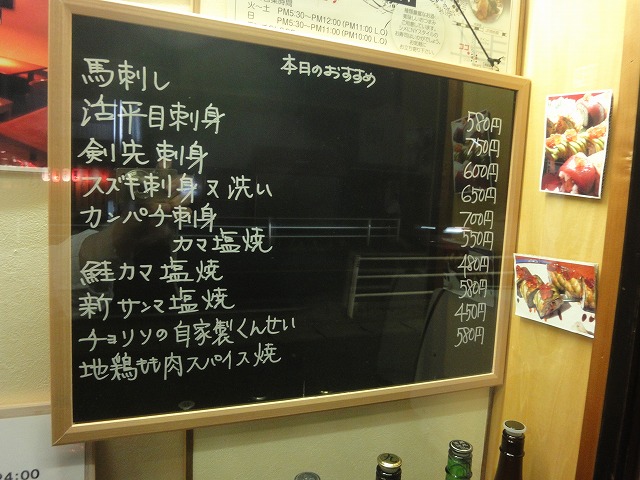 火~土 PM5:30~PM12:00(PM11:00 L.O)
日 PM5:30~PM11:00(PM10:00 L.O)
本日のおすすめ
馬刺し 580円
活平目刺身 750円
剣先刺身 600円
スズキ刺身又洗い 650円
カンパチ刺身 700円
カマ塩焼 550円
鮭カマ塩焼 480円
新サンマ塩焼 580円
チョリソの自家製くんせい 450円
地鶏もも肉スパイス焼 580円
24:00